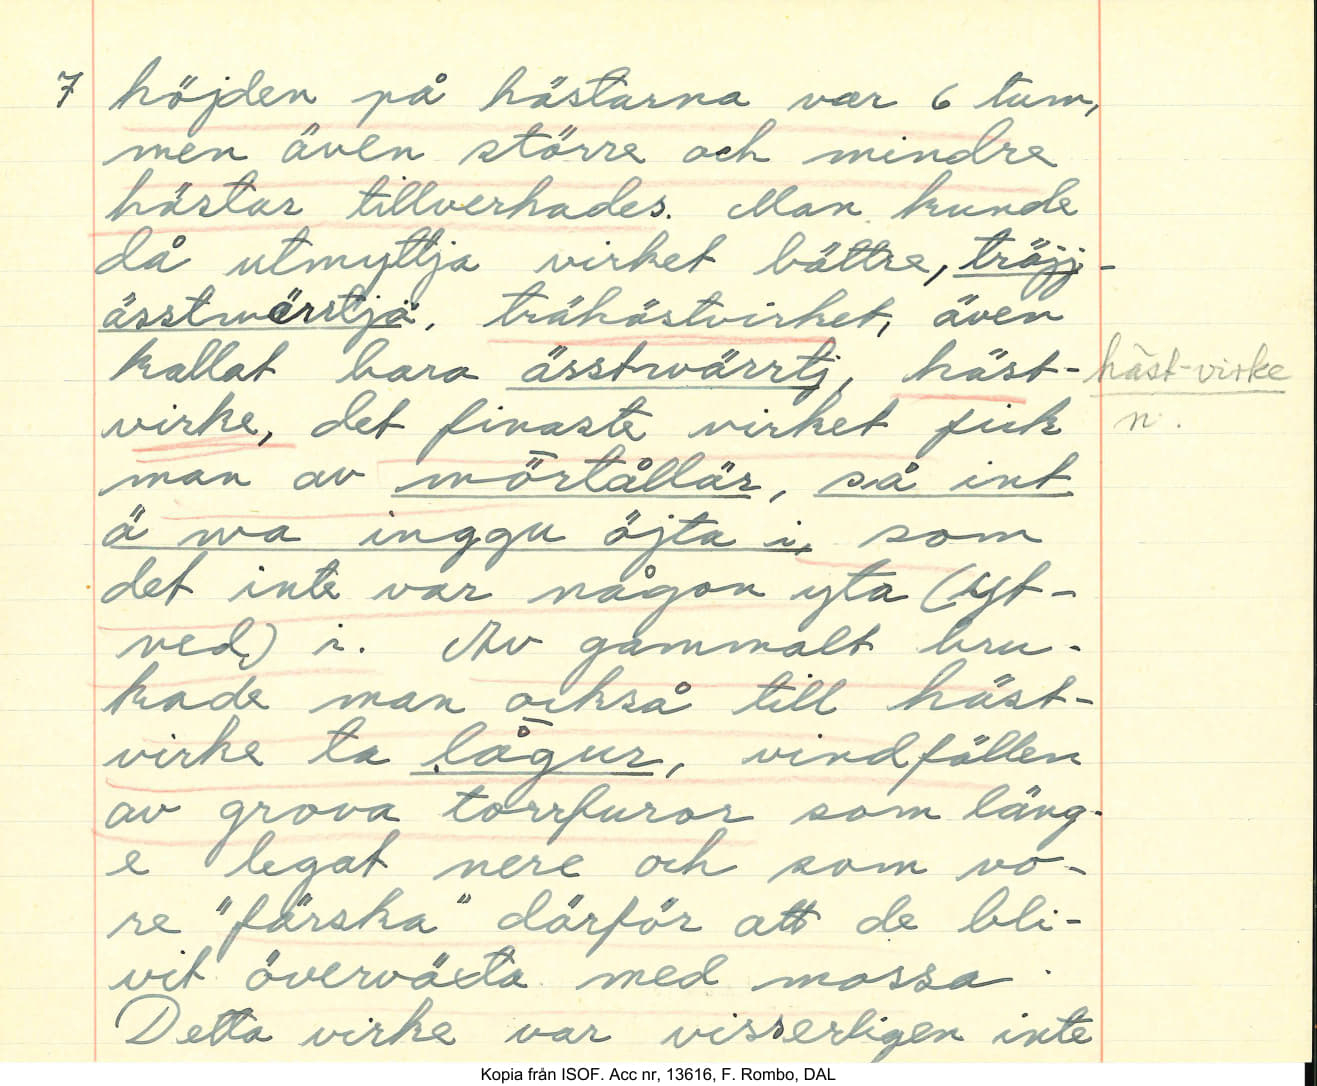 7 höjden på hästarna var 6 tum,
men även större och mindre
hästar tillverkades. Man kunde
då utmyttja virket bättre, träjj-
ässtwärrtjä, trähästvirket, även
kallat bara ässtwärrtj, häst- häst-virke
virke, det finaste virket fick n.
man av mörtållär, så int
ä wa inggu öjta i, som
det inte var någon yta (yt-
ved) i. Av gammalt bru-
kade man också till häst-
virke ta lågur, vindfällen
av grova torrfuror som läng-
e legat nere och som vo-
re "färska" därför att de bli-
vit överväxta med mossa.
Detta virke var visserligen inte
Kopia från ISOF. Acc nr, 13616, F. Rombo, DAL